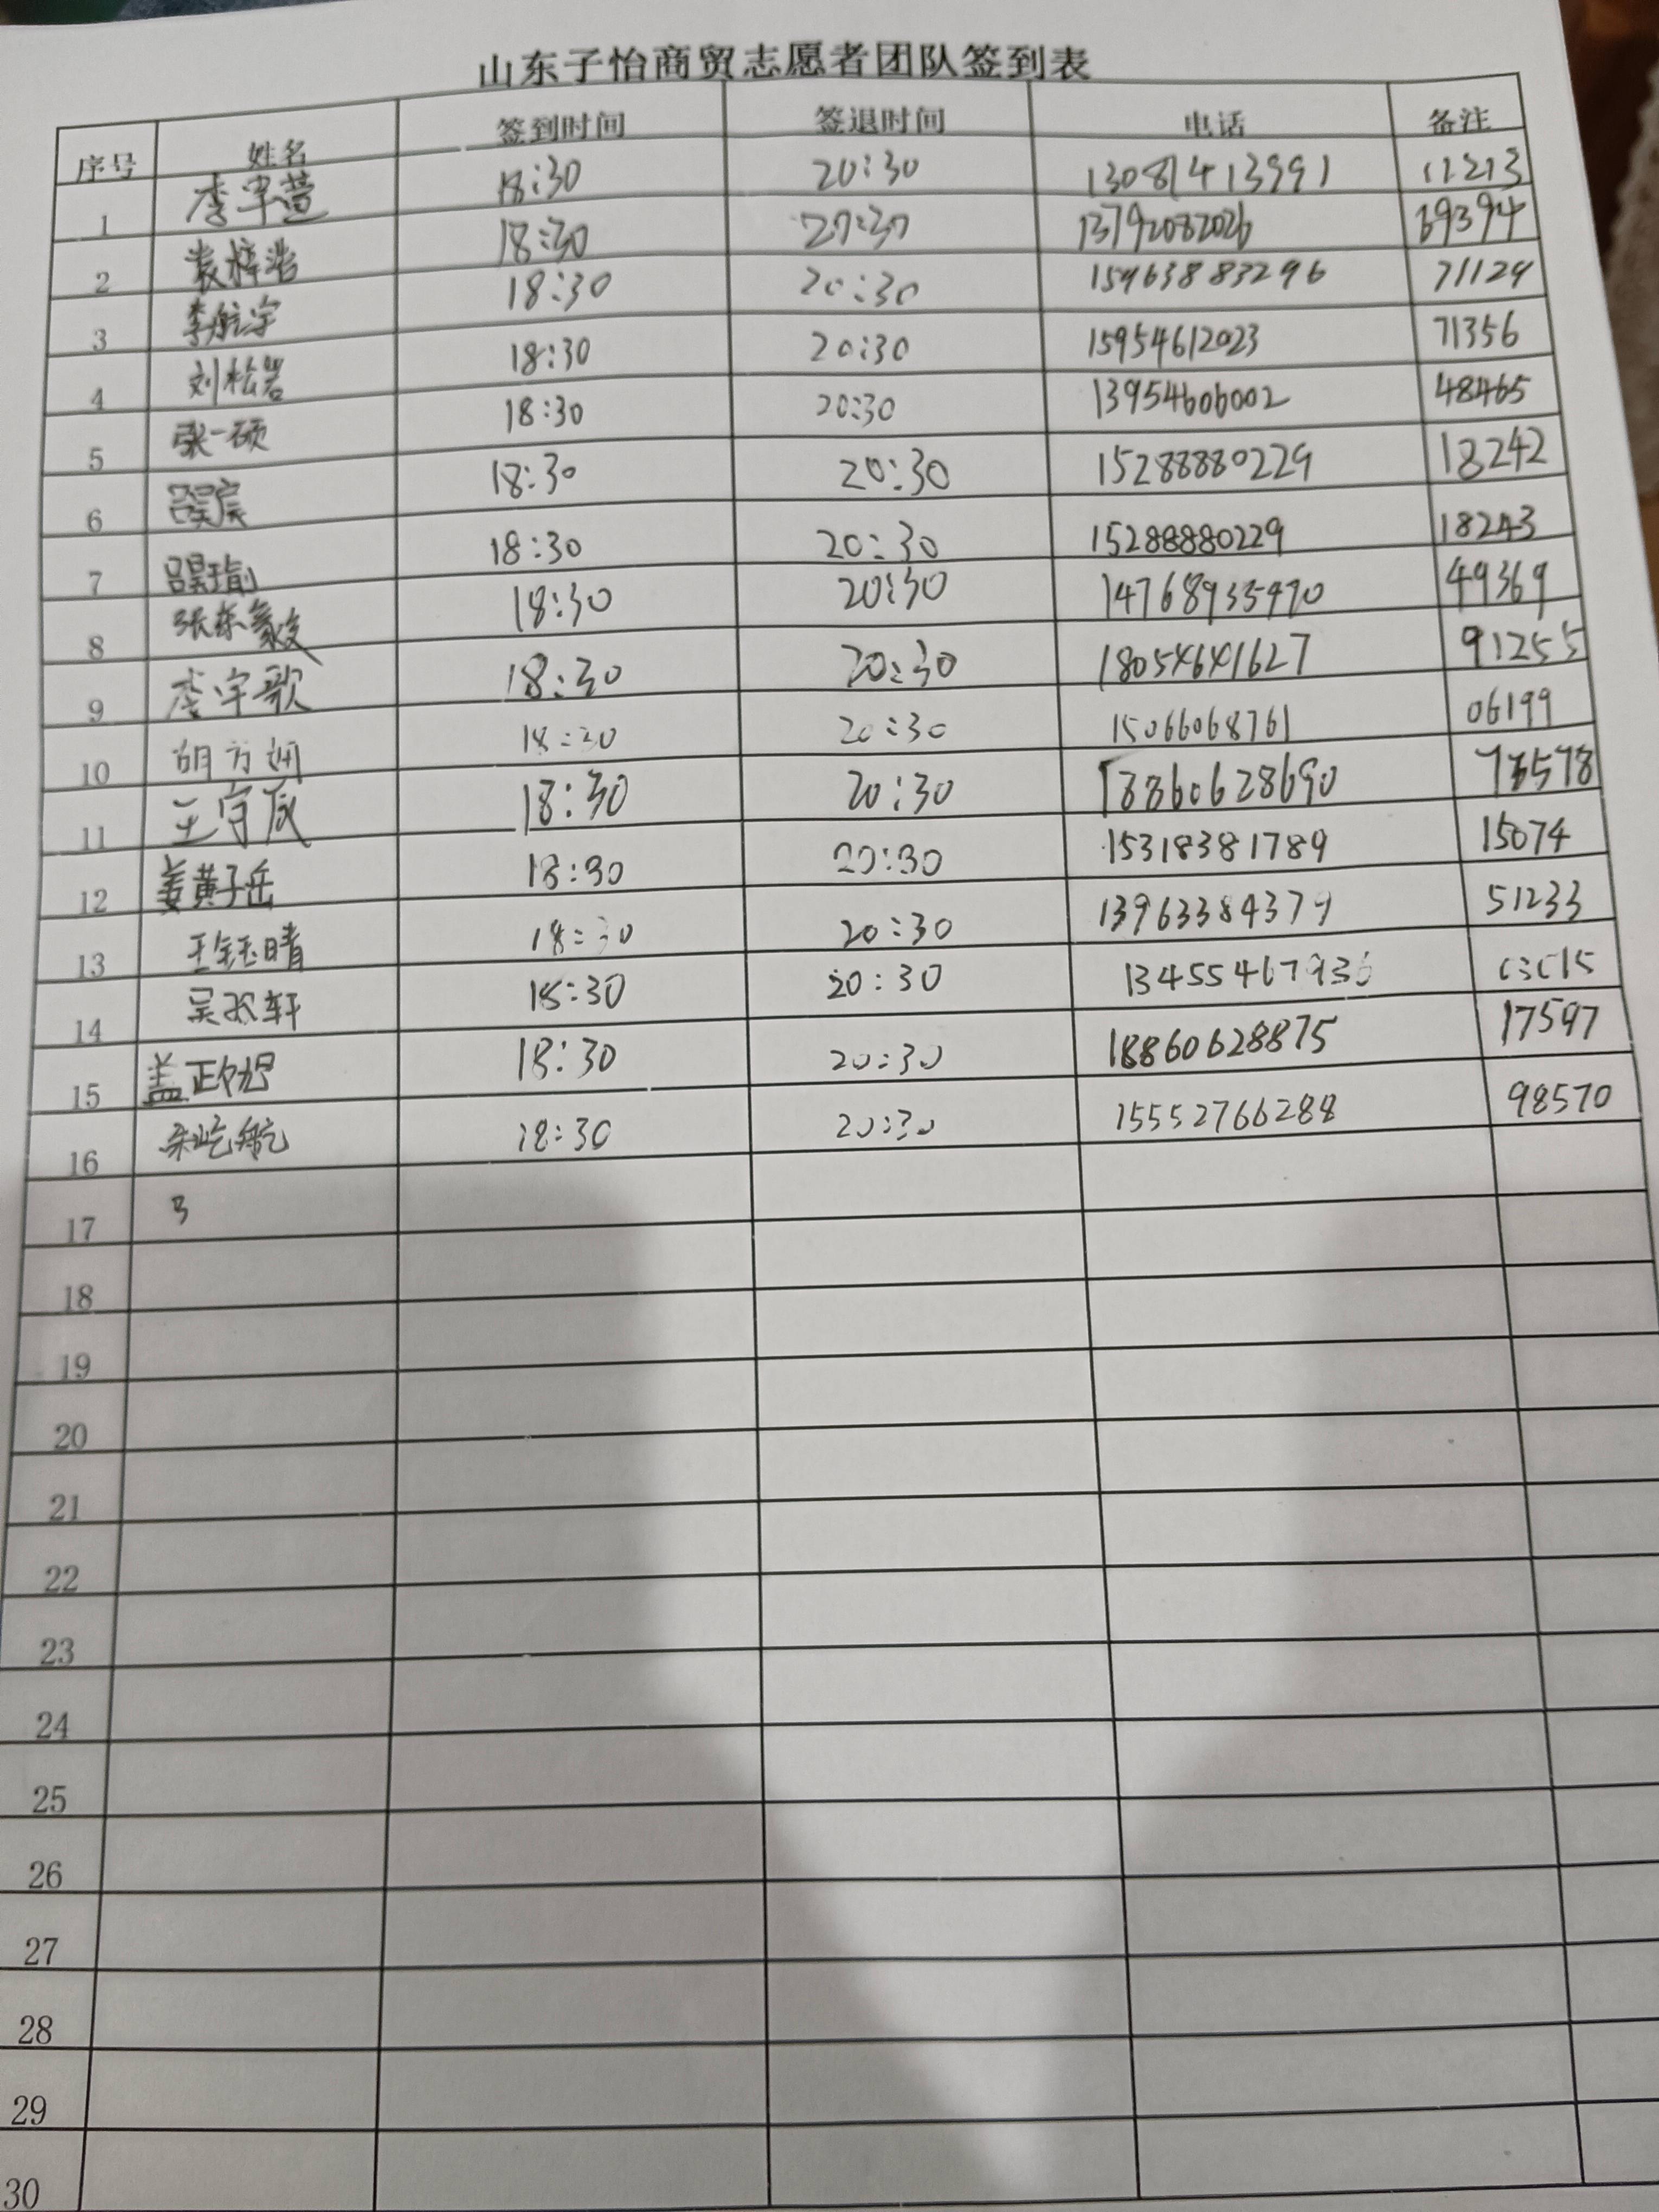 山东子怡商贸志愿者团队签到表
序号 姓名 签到时间 签退时间 电话 备注
1 李宇萱 18:30 20:30 13081413991 11213
2 袁梓浩 18:30 20:30 13792082026 69394
3 李航宇 18:30 20:30 15963883296 71129
4 刘松岩 18:30 20:30 15954612023 71356
5 张一硕 18:30 20:30 13954606002 48465
6 吕昊宸 18:30 20:30 15288880229 18242
7 吕昊瑜 18:30 20:30 15288880229 18243
8 张栋豪 18:30 20:30 14768935970 49369
9 李宇歌 18:30 20:30 18054641627 91255
10 胡方 18:30 20:30 15066068761 06199
11 王宇辰 18:30 20:30 18860628690 78578
12 姜黄子岳 18:30 20:30 15318381789 15074
13 王钰晴 18:30 20:30 13963384379 51233
14 吴 轩 18:30 20:30 13455467936 03015
15 盖正 18:30 20:30 18860628875 17597
16 朱屹航 18:30 20:30 15552766288 98570
17
18
19
20
21
22
23
24
25
26
27
28
29
30